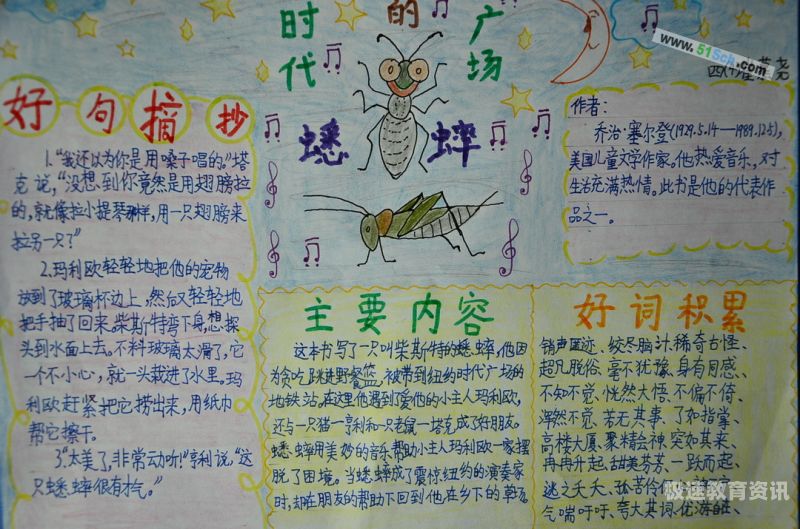 时代的广场
蟋蟀
www.515ch.com
好句摘抄
1.“我还以为你是用嗓子唱的,”塔
克说,“没想到你竟然是用翅膀拉
的,就像拉小提琴那样,用一只翅膀来
拉另一只?”
2.玛利欧轻轻地把他的宠物
放到了玻璃杯边上,然后又轻轻地
把手抽了回来。柴斯特弯下身,想探
头到水面上去。不料玻璃太滑了,它
一个不小心,就一头栽进了水里。玛
利欧赶紧把它捞出来,用纸巾
帮它擦干。
3.“太美了,非常动听!”亨利说,“这
只蟋蟀很有才气。”
作者:
乔治·塞尔登(1929.5.14—1989.12.5),
美国儿童文学作家,他热爱音乐,对
生活充满热情。此书是他的代表作
品之一。
主要内容
这本书写了一只叫柴斯特的蟋蟀,他因
为贪吃跳进野餐篮,被带到纽约时代广场的
地铁站。在这里他遇到了爱他的小主人玛利欧,
还与一只猫—亨利和一只老鼠—塔克成了好朋友。
蟋蟀用美妙的音乐帮助小主人玛利欧一家摆
脱了困境。当蟋蟀成了震惊纽约的演奏家
时,却在朋友的帮助下回到他在乡下的草石
好词积累
销声匿迹、绞尽脑汁、稀奇古怪、
超凡脱俗、毫不犹豫、身有同感、
不知不觉、恍然大悟、不偏不倚、
浑然不觉、若无其事、了如指掌、
高楼大厦、聚精会神、突如其来、
冉冉升起、甜美芬芳、一跃而起、
逃之夭夭、孤苦伶仃
气喘吁吁、夸大其词、优游自在、
极速教育资讯